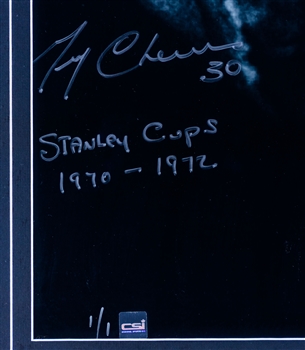 30
STANLEY CUPS
1970 - 1972
1/1
CSI